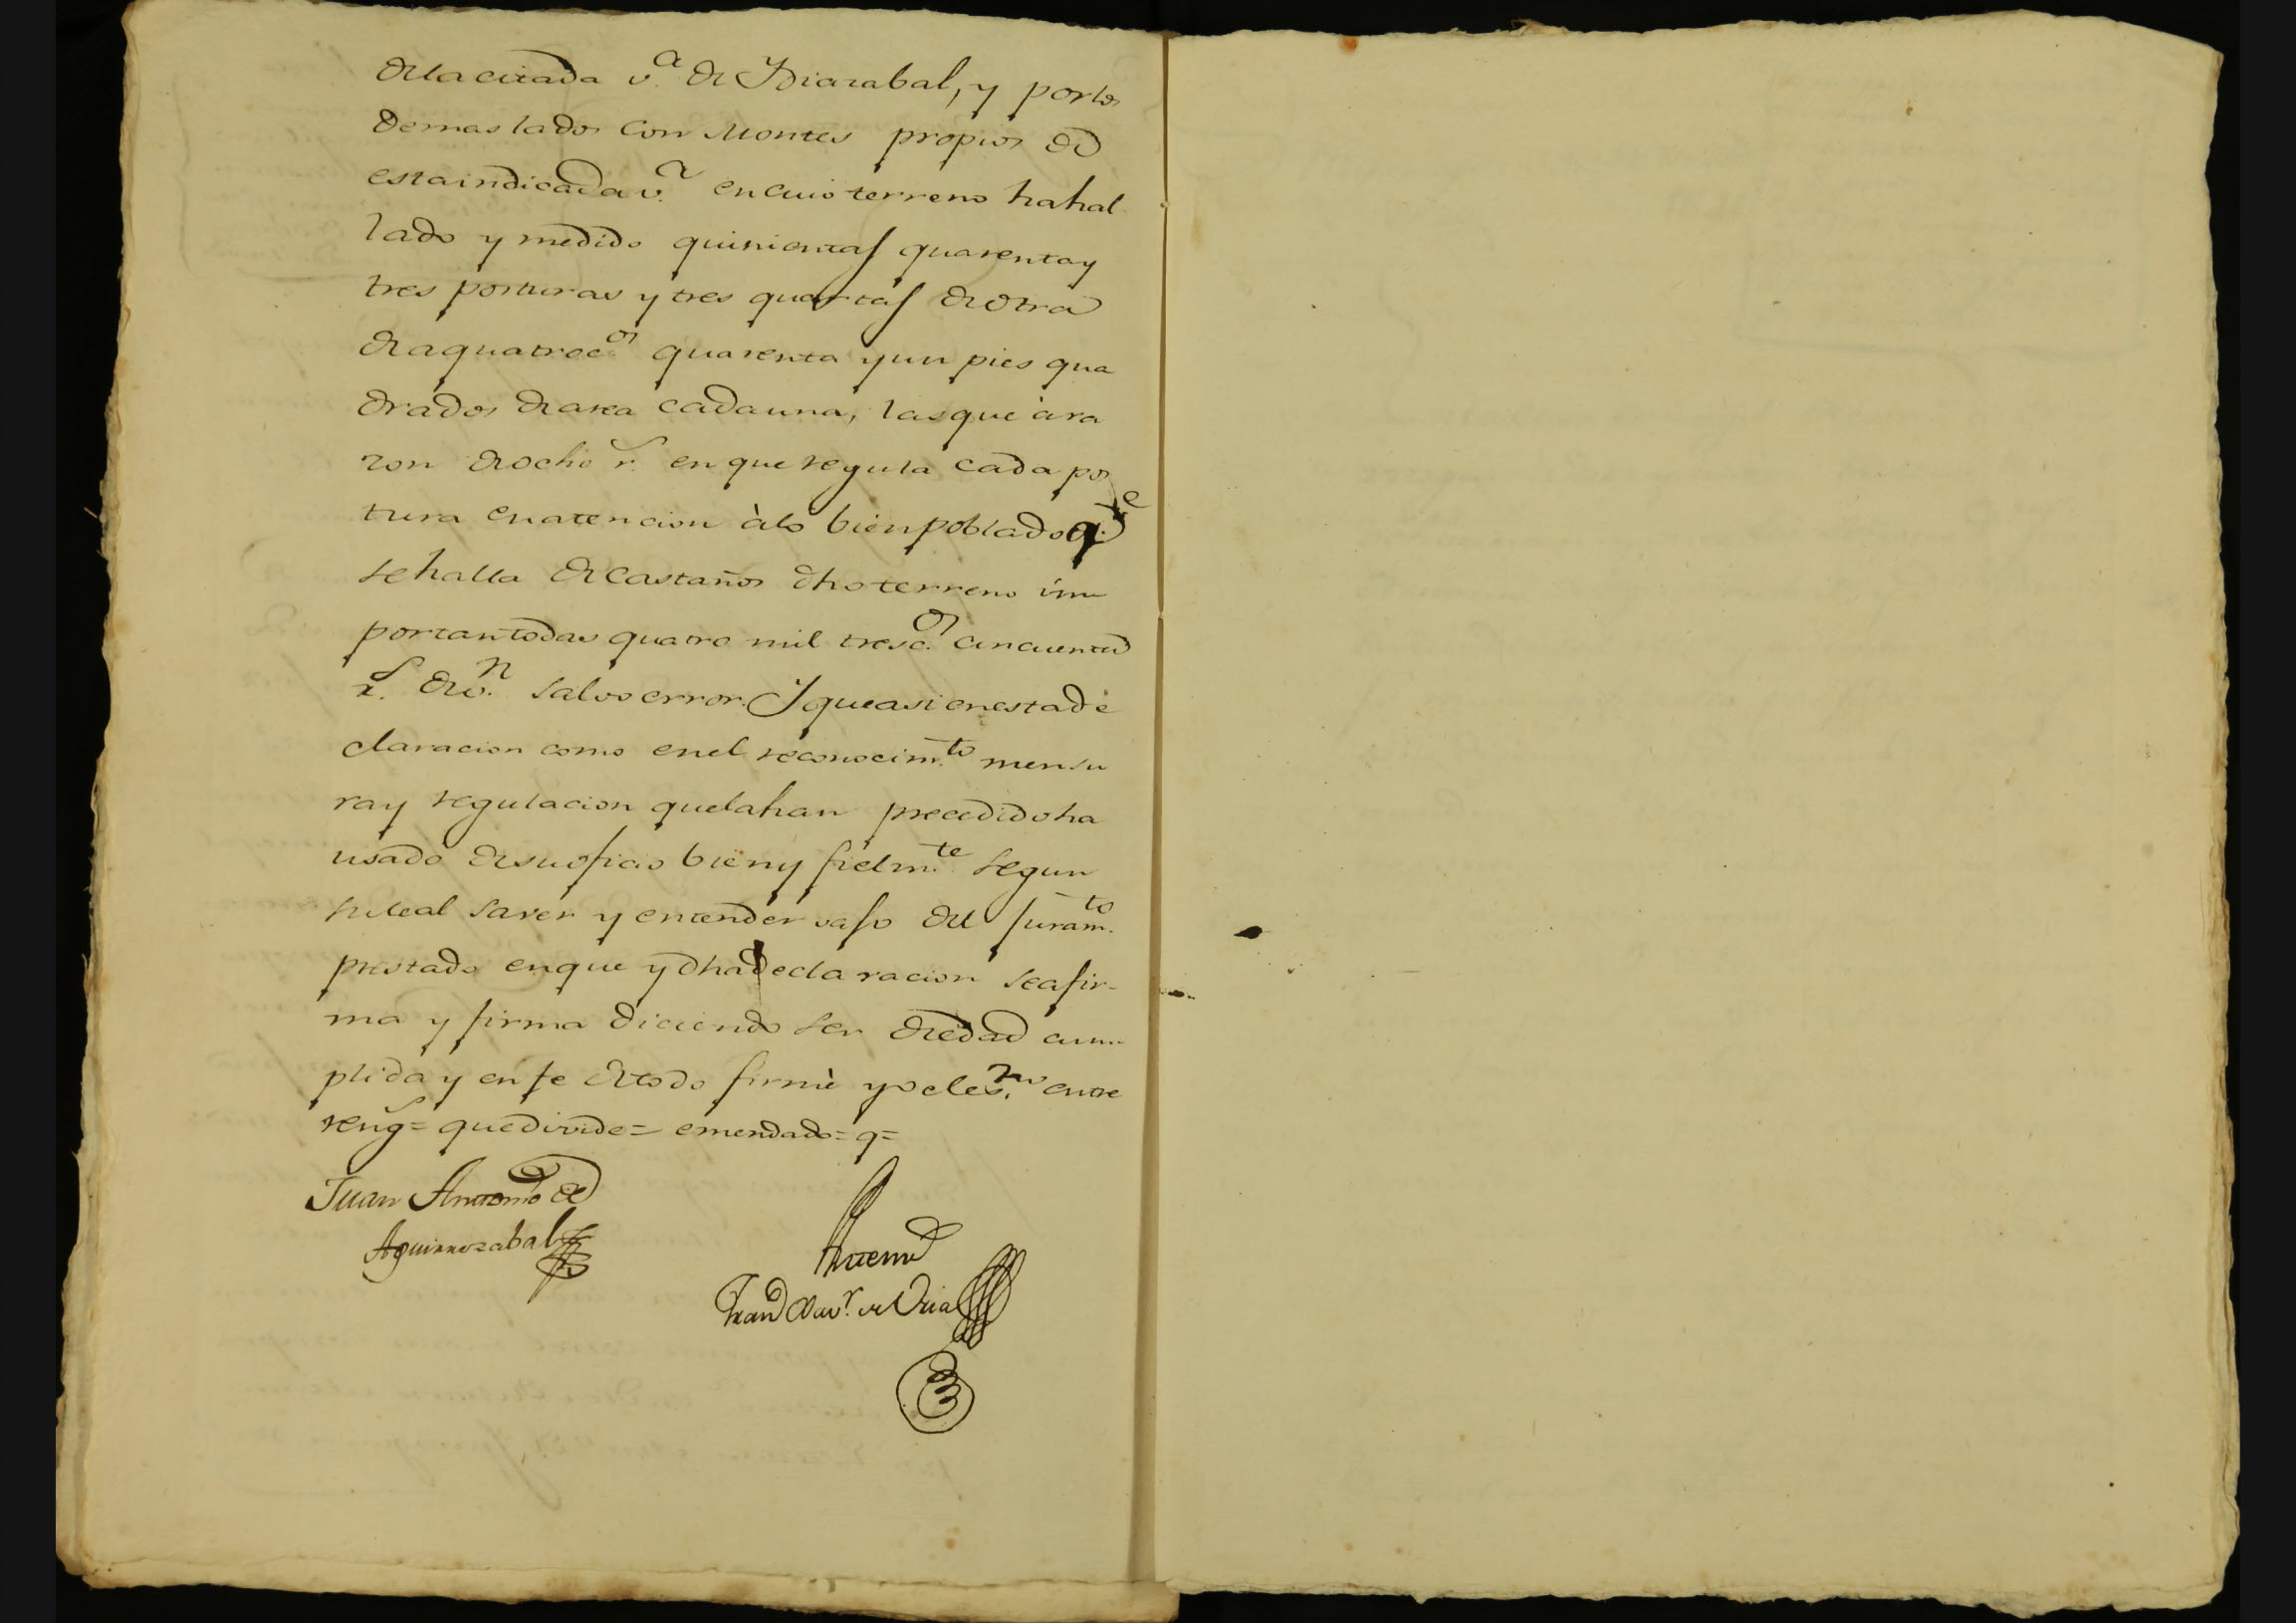 dela citada v.ª de Ydiazabal, y por los
demas lados con Montes propios de
esta indicada v.ª en cuio terreno ha hal
lado y medido quinientas quarenta y
tres posturas y tres quartas de otra
de a quatroc.os quarenta y un pies qua
drados de area cada una, las que à ra
zon de ocho r.s en que regula cada pos
tura en atencion à lo bien poblado q.e
se halla de castaños dho terreno im
portan todas quatro mil tresc.os cincuenta
r.s de v.n salvo error. Y que asi en esta de
claracion como en el reconocim.to mensu
ra y regulacion que la han precedido ha
usado de su oficio bien y fielm.te segun
su leal saver y entender vajo del juram.to
prestado en que y dha declaracion se afir-
ma y firma diciendo ser de edad cum-
plida y en fe de todo firmè yo el es.no entre
reng.s = que divide = emendado = q =
Juan Antonio de
Aguirrezabal
Antemi
Fran.co Xav.r de Uria